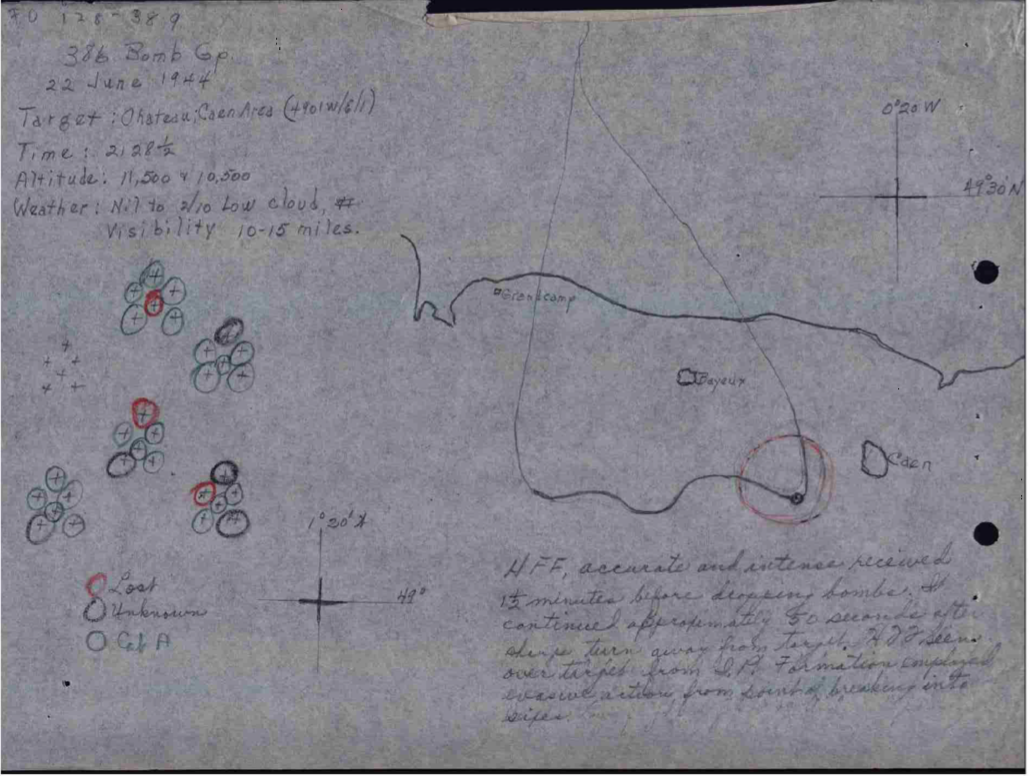 FO 128-389
386 Bomb Gp
22 June 1944
Target: Chateau: Caen Area (4901W/6/1)
Time: 2128½
Altitude: 11,500 & 10,500
Weather: Nil to 2/10 Low cloud,
Visibility 10-15 miles.
0°20 W
49°30'N
Grandcamp
Bayeux
Caen
1°20'
49°
Lost
Unknown
Cat A
HFF, accurate and intense received
1½ minutes before dropping bombs. It
continued approximately 50 seconds after
sharp turn away from target. HFF seen
over target from I.P. Formation employed
evasive action from point of breaking into
sixes.